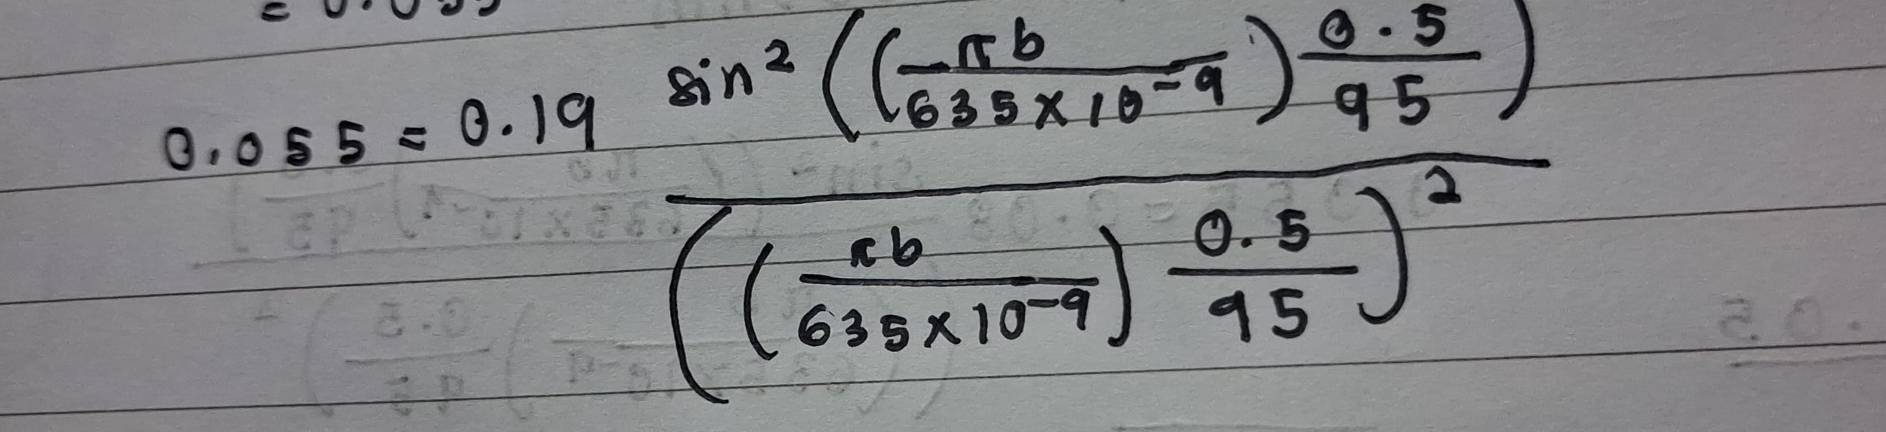 0.055 = 0.19 sin² ((πb / 635×10⁻⁹) 0.5 / 95) / ((πb / 635×10⁻⁹) 0.5 / 95)²